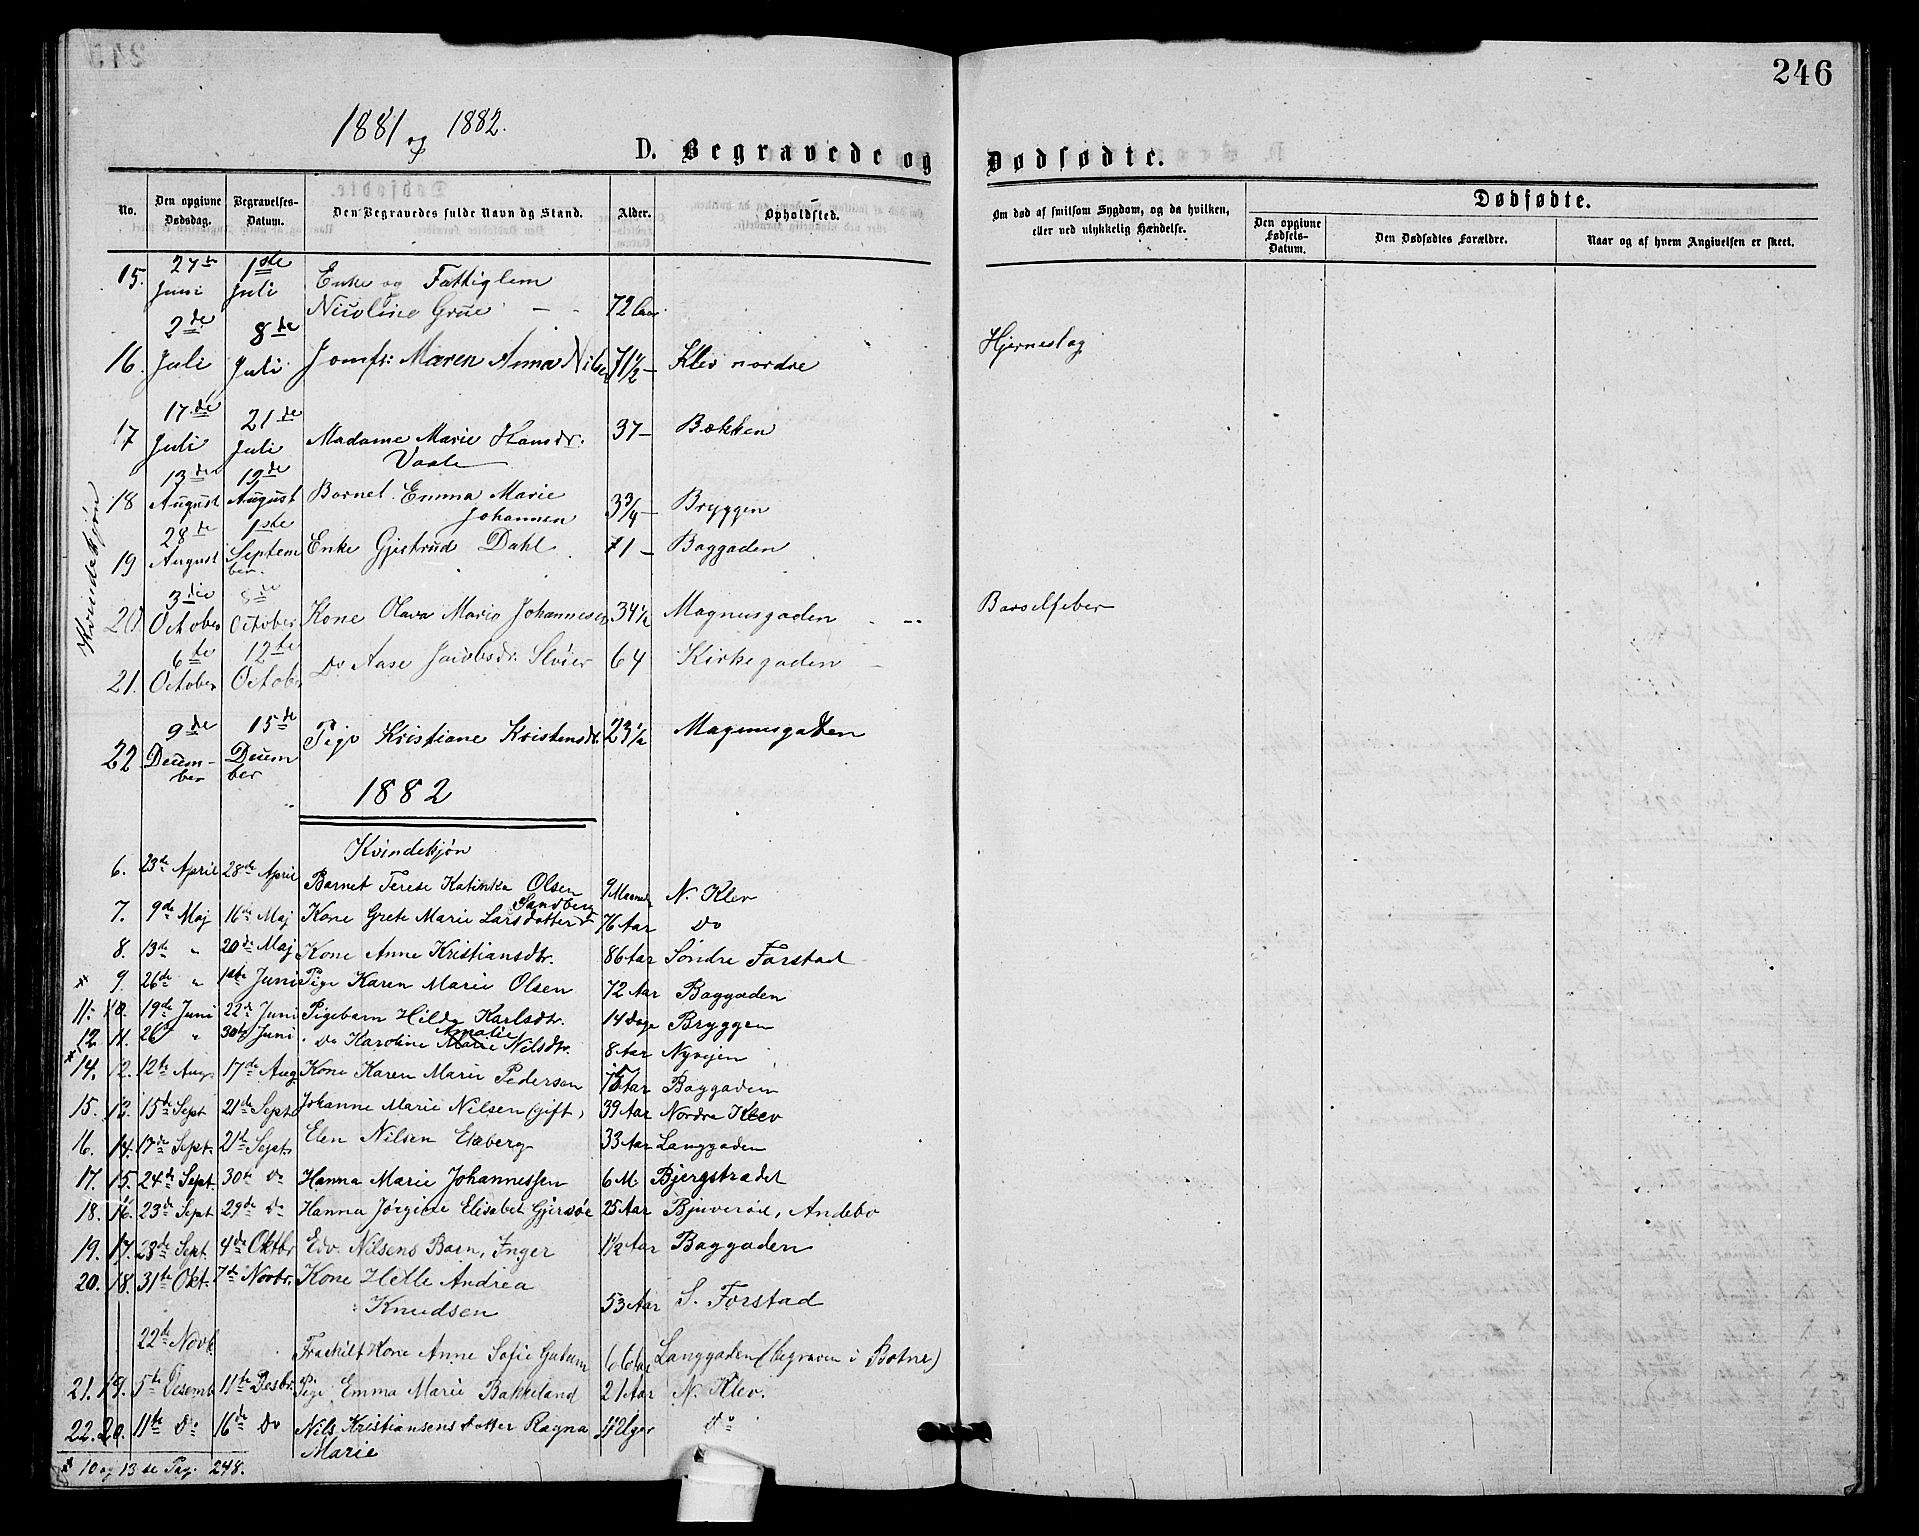 246
1881 og 1882.
D. Begravede og Dødfødte.
No.
Den opgivne Dødsdag.
Begravelses-Datum.
Den Begravedes fulde Navn og Stand.
Alder.
Opholdsted.
Om død af smitsom Sygdom, og da hvilken, eller ved ulykkelig Hændelse.
Dødfødte.
Den opgivne Fødsels-Datum.
Den Dødfødtes Forældre.
Naar og af hvem Angivelsen er skeet.
Kvindekjøn
15. 27de Juni 1ste Juli Enke og Fattiglem
Nicoline Grue 72 Aar
16. 2de Juli 8de Juli Jomfr: Maren Anna Nilsen 71 1/2 – Klev nordre Hjerneslag
17 17de Juli 21de Juli Madame Marie Hansdr. 37 – Bækken
Vaale
18 13de August 19de August Barnet Emma Marie 3 3/4 – Bryggen
Johannsen
19 28de August 1ste September Enke Gjertrud Dahl 71 – Baggaden
20 3die October 8de October Kone Olava Marie Johannesen 34 1/2 Magnusgaden Barselfeber
21. 6te October 12te October Do Aase Jacobsdr. 64 Kirkegaden
22 9de December 15de December Pige Kristiane Kristensdr. 23 1/2 Magnusgaden
1882
Kvindekjøn
6. 23de April 28de April Barnet Terese Katinka Olsen 9 Maaneder N. Klev
Sandberg
7. 9de Maj 16de Maj Kone Grete Marie Larsdotter 76 Aar Do
8. 13de " 20de Maj Kone Anne Kristiansdtr. 86 Aar Søndre Førstad
* 9. 26de " 1ste Juni Pige Karen Marie Olsen 72 Aar Baggaden
11. 10. 19de Juni 22de Juni Pigebarn Hilda Karlsdtr. 14 Dage Bryggen
Amalie
12 11. 26 " 30te Juni Do Karoline Marie Nilsdtr. 8 Aar Nyvejen
* 14. 12. 12te Aug. 17de Aug. Kone Karen Marie Pedersen 75 Aar Baggaden
15. 13. 15de Sept 21de Sept Johanne Marie Nilsen (gift) 39 Aar Nordre Klev
16. 14. 17de Sept. 21te Sept. Elen Nilsen Ekeberg 33 Aar Langgaden
17. 15. 24de Sept. 30te Do Hanna Marie Johannessen 6 M. Bjergstradet
18. 16. 23de Sept 29de Do Hanna Jørgine Elisabet Gjersøe 25 Aar Bjuverød, Andebo
19. 17. 28de Sept. 4de Oktbr Edv. Nilsens Barn, Inger 1 1/2 Aar Baggaden
20. 18. 31te Okt. 7de Novbr. Kone Helle Andrea
Knudsen 53 Aar S. Førstad
22de Novb. Fraskilt Kone Anne Sofie 66 Aar Langgaden (begraven i Botne)
21. 19. 5te Desemb 11te Desbr. Pige Emma Marie Bakkeland 21 Aar N. Klev.
22. 20. 11te Do 16de Do Nils Kristiansens Datter Ragna Uger Do
Marie
* 10 og 13 se Pag. 248.